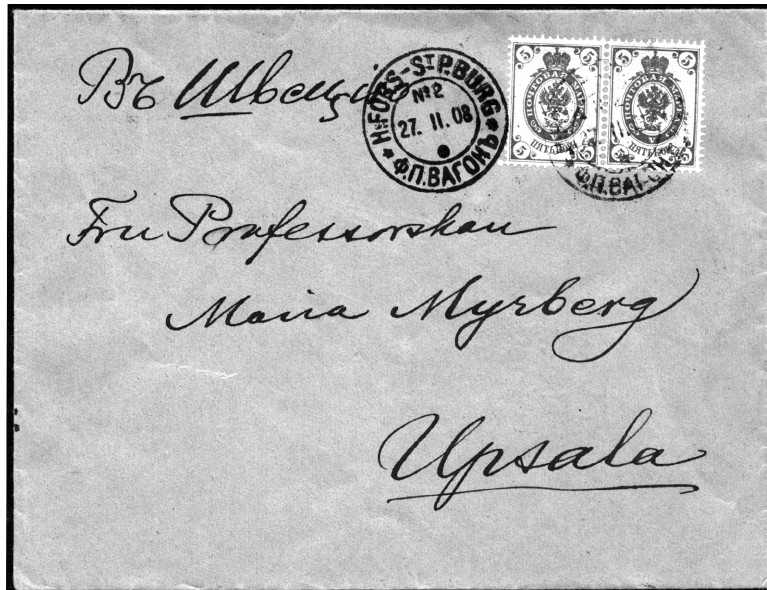 Въ Швецію
H:FORS-ST P.BURG
№2
27. II. 08
Ф.П.ВАГОНЪ
5 5
ПОЧТОВАЯ МАРКА
5 5
5 5
ПОЧТОВАЯ МАРКА
5 5
Ф.П.ВАГОНЪ
Fru Professorskan
Maria Myrberg
Upsala